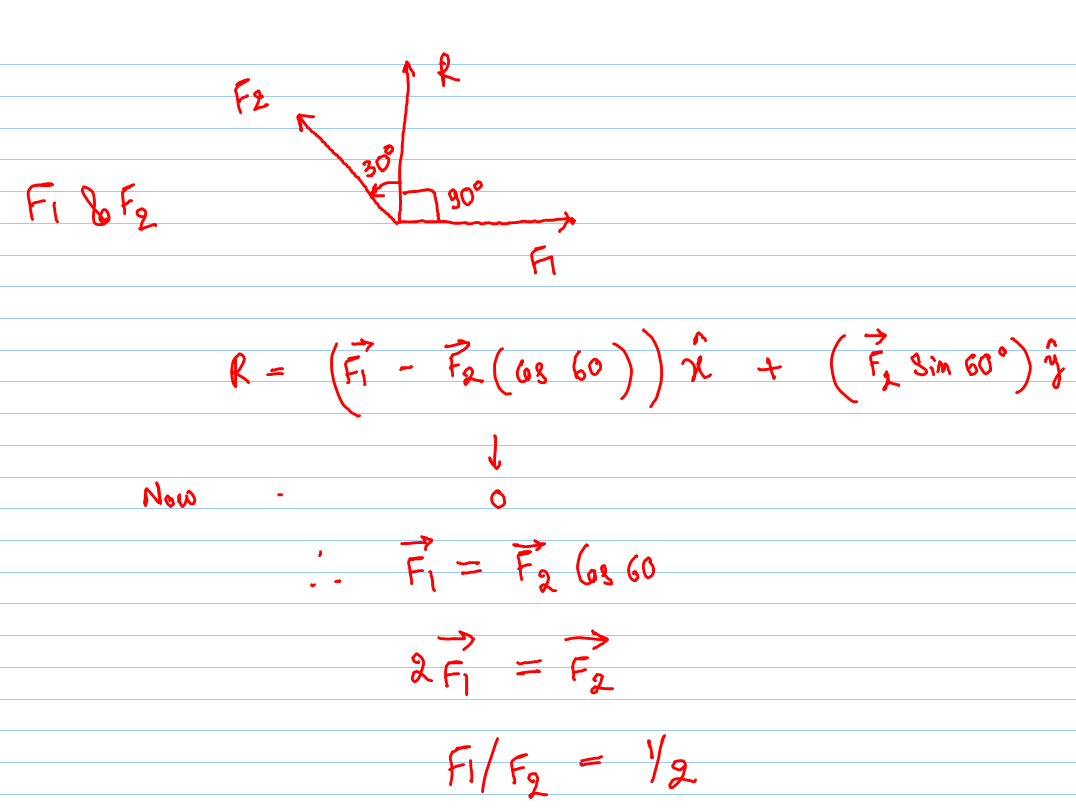 R
F2
30°
F1 & F2
90°
F1
R = (F⃗1 - F⃗2 (Cos 60)) x̂ + (F⃗2 Sin 60°) ŷ
↓
Now · 0
∴ F⃗1 = F⃗2 Cos 60
2F⃗1 = F⃗2
F1/F2 = 1/2